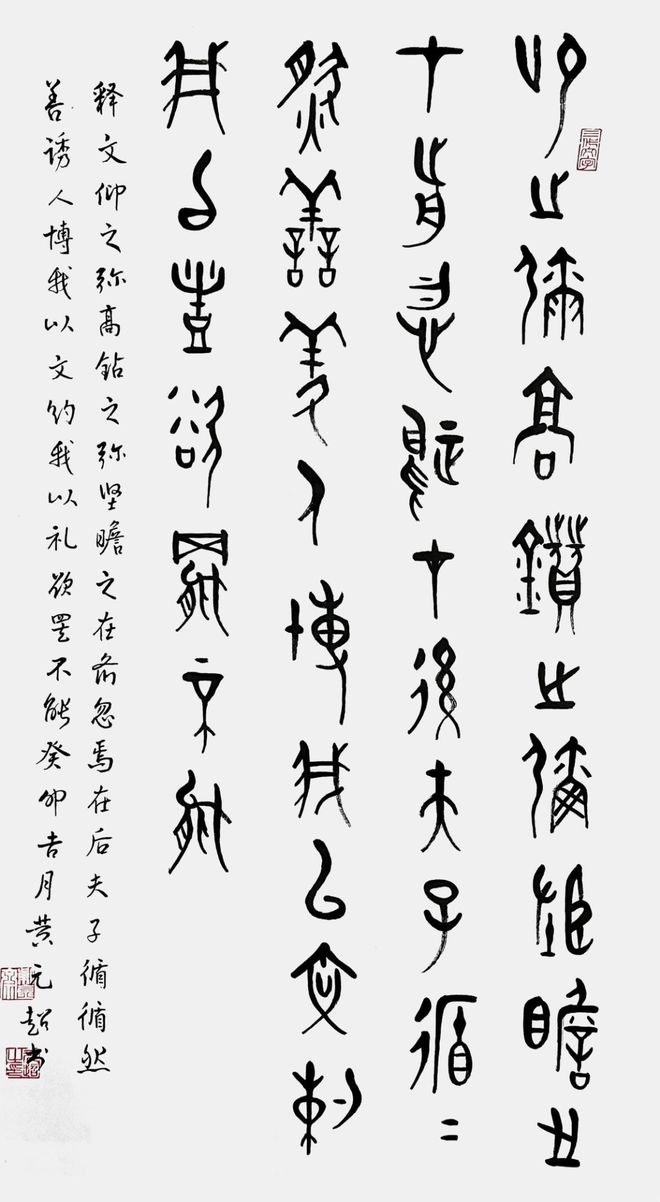 仰之彌高鑽之彌堅瞻之
在前忽焉在後夫子循=
然善誘人博我以文約
我以禮欲罷不能
释文仰之弥高钻之弥坚瞻之在前忽焉在后夫子循循然
善诱人博我以文约我以礼欲罢不能癸卯吉月黄元超书